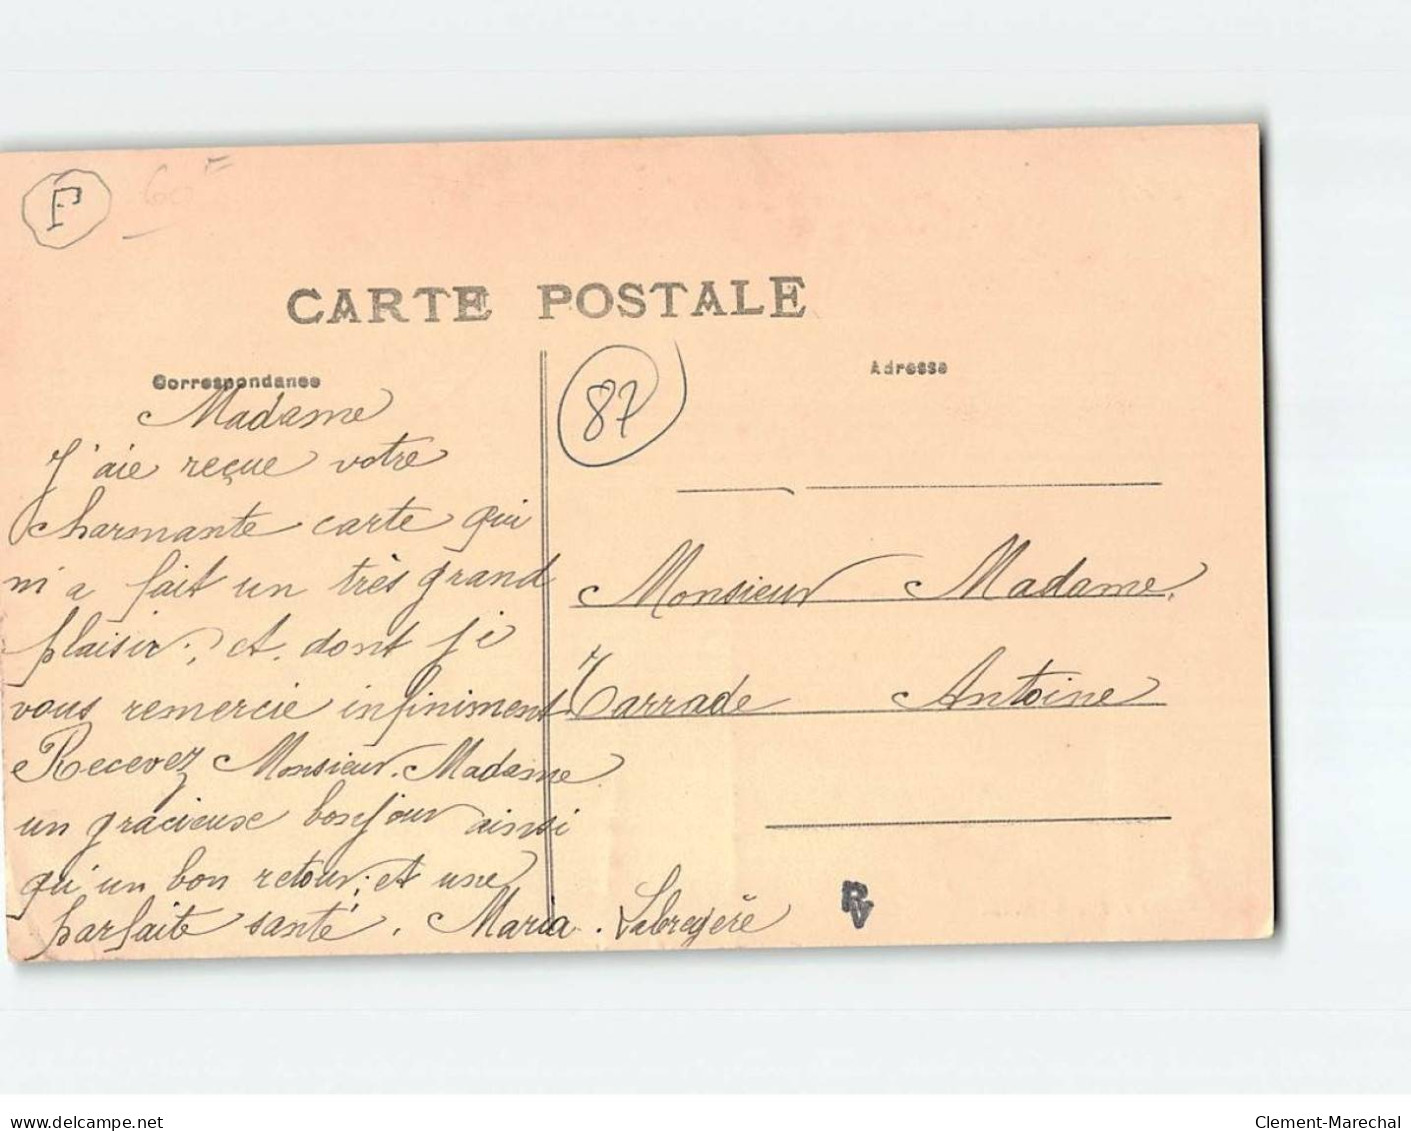 F
60 F
CARTE POSTALE
Correspondance
Adresse
87
Madame
J'aie reçue votre
charmante carte qui
m'a fait un très grand
plaisir, et dont je
vous remercie infiniment
Recevez Monsieur. Madame
un gracieuse bonjour ainsi
qu'un bon retour, et une
parfaite santé. Maria. Labregère
Monsieur Madame
Tarrade Antoine
RV
delcampe.net
Clement-Marechal